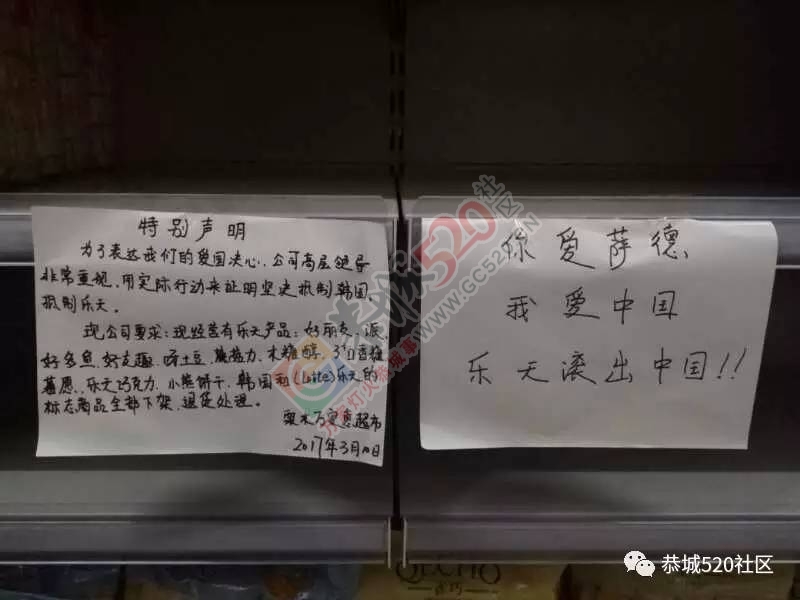 特别声明
为了表达我们的爱国决心、公司高层领导
非常重视,用实际行动来证明坚决抵制韩国、
抵制乐天。
现公司要求:现经营有乐天产品:好丽友、派、
好多鱼、好友趣、呀土豆、木糖醇、
乐天巧克力、小熊饼干、韩国和(Lotte)乐天的
标志商品全部下架,退货处理。
超市
2017年3月10日
你爱萨德、
我爱中国
乐天滚出中国!!
520社区
www.GC520.CN
恭城520社区